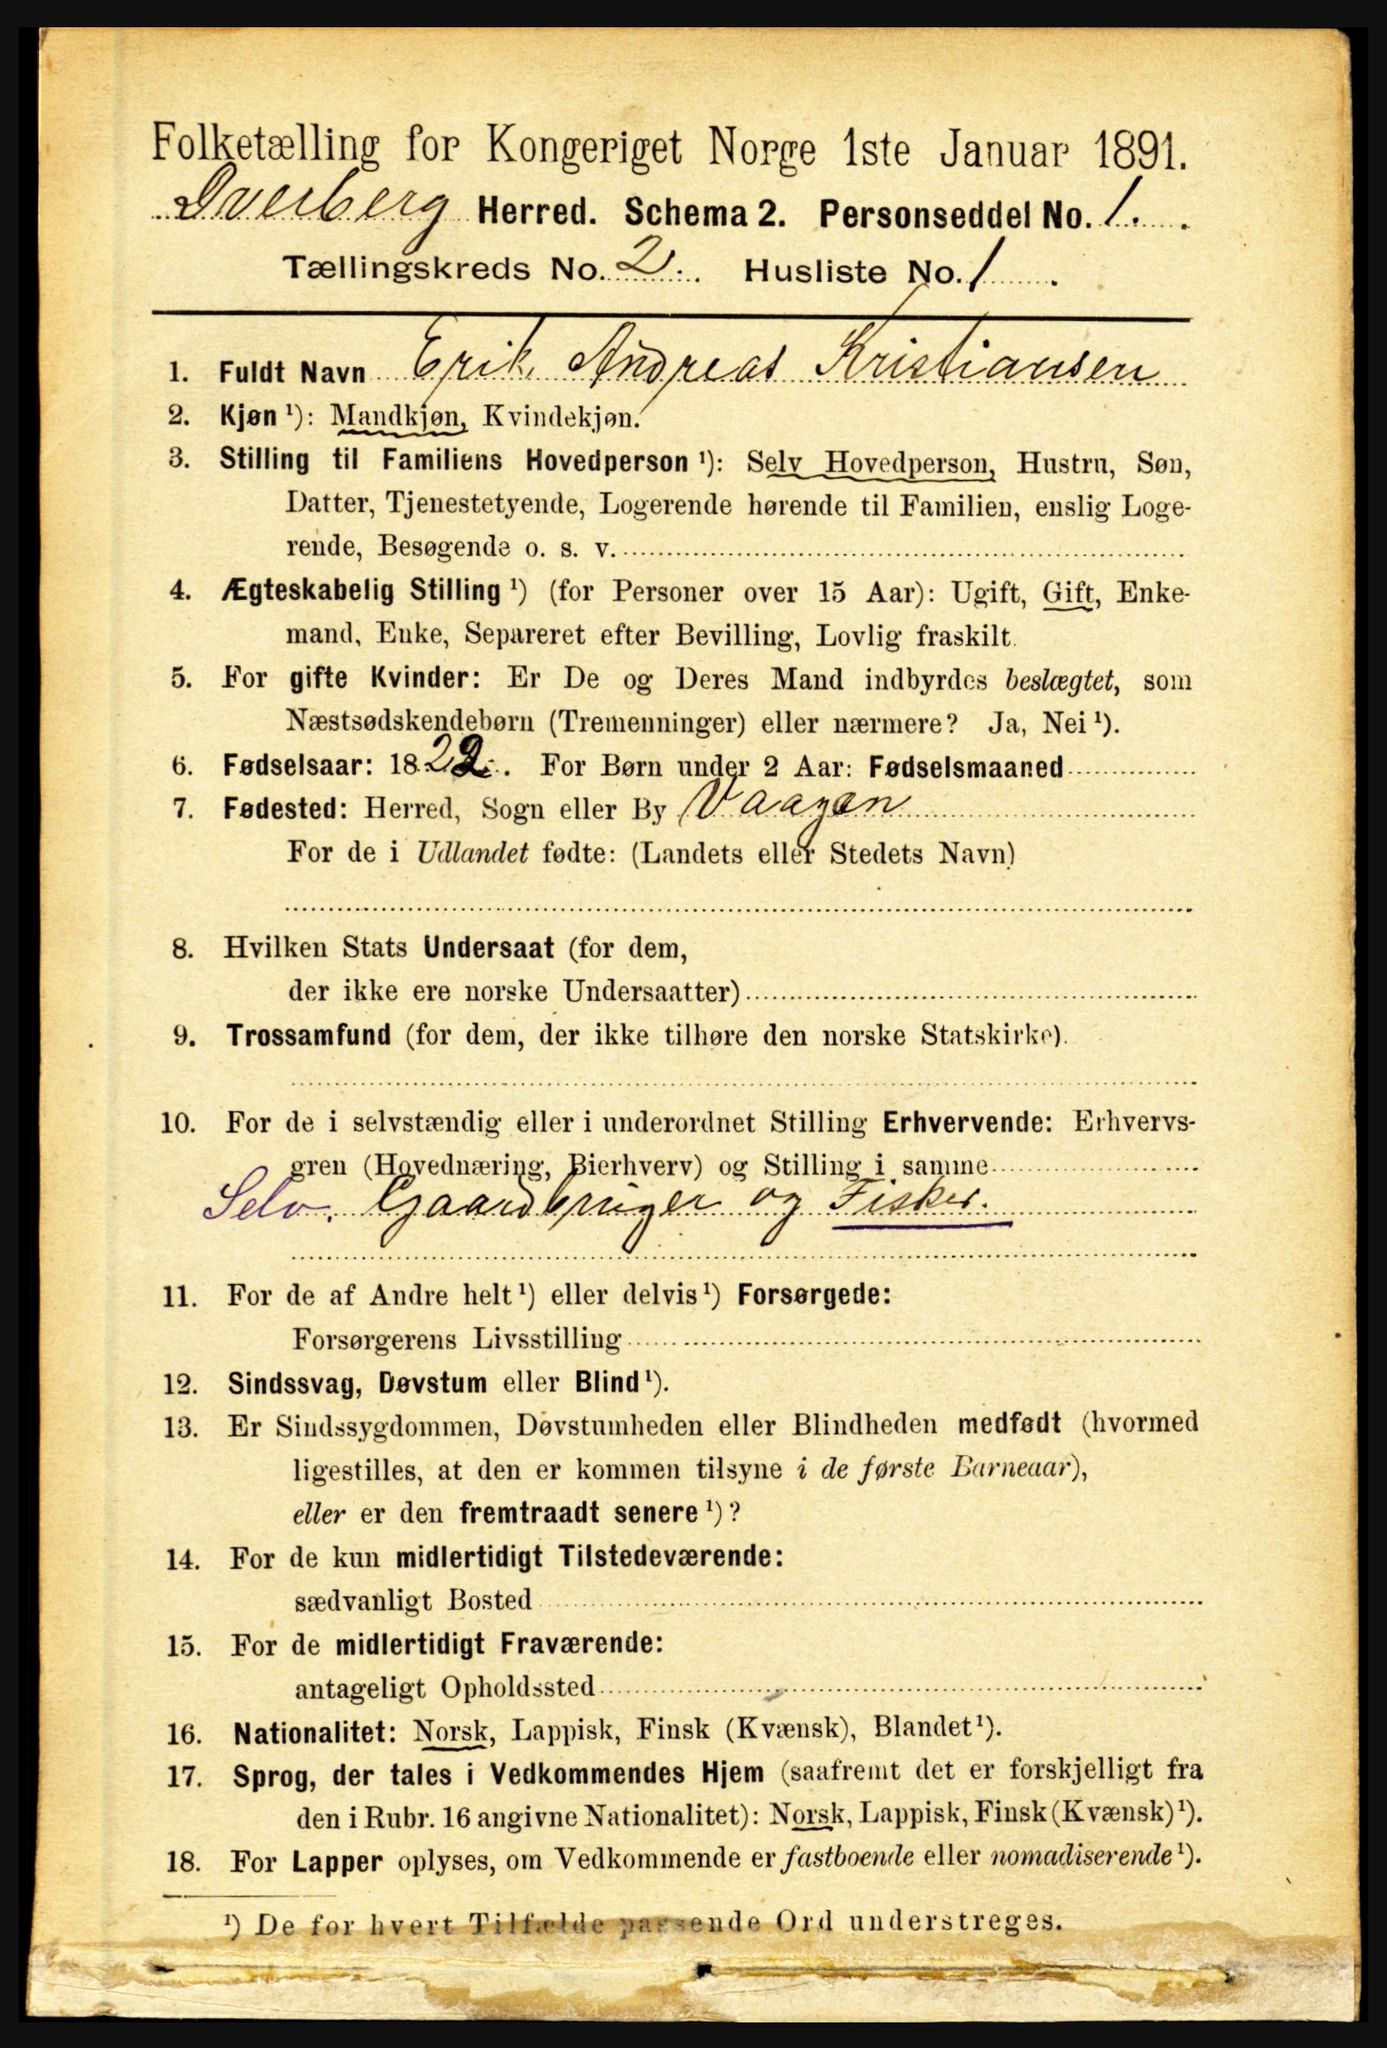 Folketælling for Kongeriget Norge 1ste Januar 1891.
Dverberg Herred. Schema 2. Personseddel No. 1.
Tællingskreds No. 2. Husliste No. 1
1. Fuldt Navn Erik Andreas Kristiansen
2. Kjøn ¹): Mandkjøn, Kvindekjøn.
3. Stilling til Familiens Hovedperson ¹): Selv Hovedperson, Hustru, Søn,
Datter, Tjenestetyende, Logerende hørende til Familien, enslig Loge-
rende, Besøgende o. s. v.
4. Ægteskabelig Stilling ¹) (for Personer over 15 Aar): Ugift, Gift, Enke-
mand, Enke, Separeret efter Bevilling, Lovlig fraskilt.
5. For gifte Kvinder: Er De og Deres Mand indbyrdes beslægtet, som
Næstsødskendebørn (Tremenninger) eller nærmere? Ja, Nei ¹).
6. Fødselsaar: 1822. For Børn under 2 Aar: Fødselsmaaned
7. Fødested: Herred, Sogn eller By Vaagen
For de i Udlandet fødte: (Landets eller Stedets Navn)
8. Hvilken Stats Undersaat (for dem,
der ikke ere norske Undersaatter)
9. Trossamfund (for dem, der ikke tilhøre den norske Statskirke).
10. For de i selvstændig eller i underordnet Stilling Erhvervende: Erhvervs-
gren (Hovednæring, Bierhverv) og Stilling i samme
Selv. Gaardbruger og Fisker.
11. For de af Andre helt ¹) eller delvis ¹) Forsørgede:
Forsørgerens Livsstilling
12. Sindssvag, Døvstum eller Blind ¹).
13. Er Sindssygdommen, Døvstumheden eller Blindheden medfødt (hvormed
ligestilles, at den er kommen tilsyne i de første Barneaar),
eller er den fremtraadt senere ¹)?
14. For de kun midlertidigt Tilstedeværende:
sædvanligt Bosted
15. For de midlertidigt Fraværende:
antageligt Opholdssted
16. Nationalitet: Norsk, Lappisk, Finsk (Kvænsk), Blandet ¹).
17. Sprog, der tales i Vedkommendes Hjem (saafremt det er forskjelligt fra
den i Rubr. 16 angivne Nationalitet): Norsk, Lappisk, Finsk (Kvænsk) ¹).
18. For Lapper oplyses, om Vedkommende er fastboende eller nomadiserende ¹).
¹) De for hvert Tilfælde passende Ord understreges.